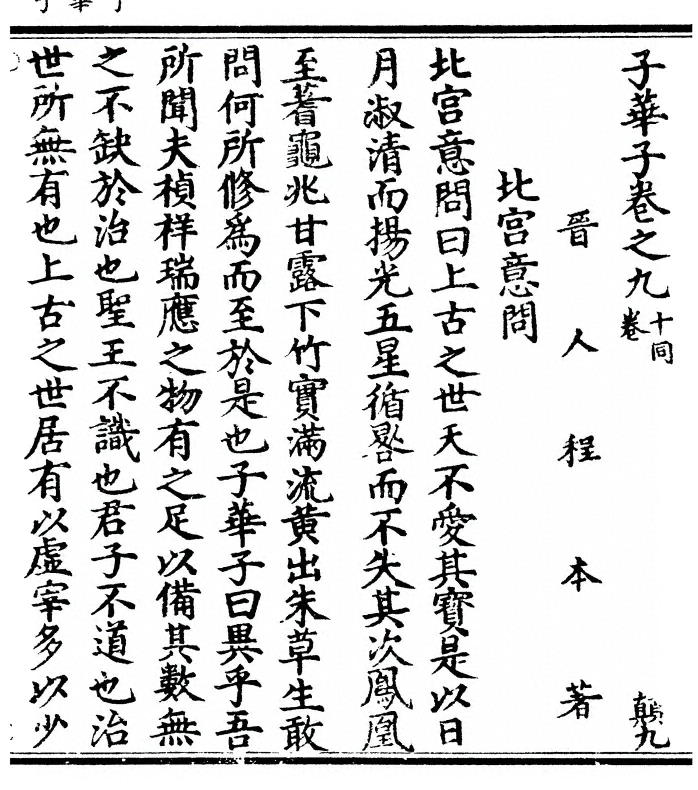 子華子卷之九 十同卷 顛九
晉人程本著
北宮意問
北宮意問曰上古之世天不愛其寶是以日
月淑清而揚光五星循晷而不失其次鳳凰
至蓍龜兆甘露下竹實滿流黃出朱草生敢
問何所修為而至於是也子華子曰異乎吾
所聞夫禎祥瑞應之物有之足以備其數無
之不缺於治也聖王不識也君子不道也治
世所無有也上古之世居有以虛宰多以少